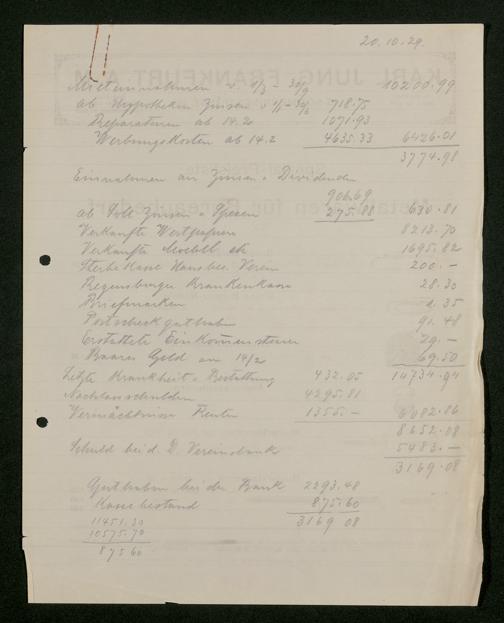 20.10.29.
Mieteinnahmen v. 1/3 – 30/9 10200.99
ab Hypotheken Zinsen v 1/1 – 30/6 718.75
Reparaturen ab 14.2 1071.93
Werbungskosten ab 14.2 4635.33 6426.01
3774.98
Einnahmen an Zinsen u Dividenden
906.69
ab Soll Zinsen u Spesen 275.88 630.81
Verkaufte Wertpapiere 8213.70
Verkaufte Moebel etc 1695.82
Sterbekasse Hausbes. Verein 200.–
Regensburger Krankenkasse 28.30
Briefmarken 2.35
Postscheckguthaben 91.48
Erstattete Einkommensteuer 29.–
Baares Geld am 14/2 69.50
Letzte Krankheit u Bestattung 432.05 14734.94
Nachlassschulden 4295.81
Vermächtnisse Renten 1355.– 6082.86
8652.08
Schuld bei d. D. Vereinsbank 5483.–
3169.08
Guthaben bei der Bank 2293.48
Kassebestand 875.60
11451.30 3169 08
10575.70
875 60
KARL JUNG, FRANKFURT A.M.